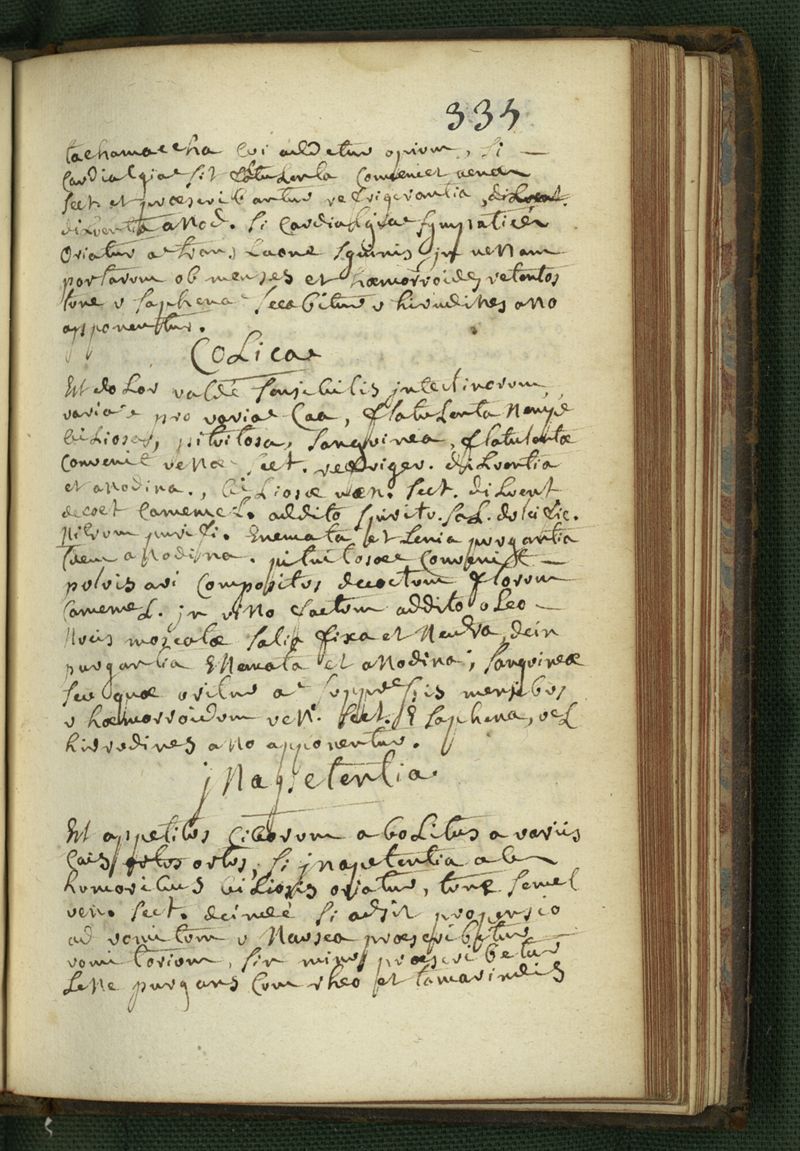 335
tachamaccha cui addetur opium, si
Cardialgia sit flatulenta Conveniet venae
sect. et praescribantur refrigerantia,
diluentia anod. Si Cardialgia sympaticè
Oriatur a translaone sguinis in venam
portarum ob menses et haemorroides retentos
tunc v saphena secabitur v hirudines ano
apponentur.
Colica
Est dolor valdè sensibilis intestinorum,
varia pro varia Caa, flatulenta nempe
biliosa, pituitosa, sanguinea, flatulentae
Convenit venae sect. refriger. diluentia
et anodina., biliosae ven. sect. diluent
decoct Camemel. addito spiritu. sal. dulcific.
Nitrum purifi. Enemata et lenia purgantia
tum anodina. pituitosae Convenit
pulvis ari Compositus decoctum florum
Camemel. in vino factum addito oleo
Nucis moscatae salia fixa et Neutra, dein
purgantia Enemata et anodina; sanguineae
seu quae oritur a suppressis mensibus
v haemorroidum ven. sect. E saphena, vel
hirudines ano apponentur.
inapetentia
Est appetitus Ciborum abolitus a variis
Cais ortus, si inapetentia ab
humoribus biliosis oriatur, tunc semel
ven. sect. deindè si adsit propensio
ad vomitum v Nausea praescribetur
vomitorium, sin minus praescribetur
lene purgans Cum rheo et tamarindis